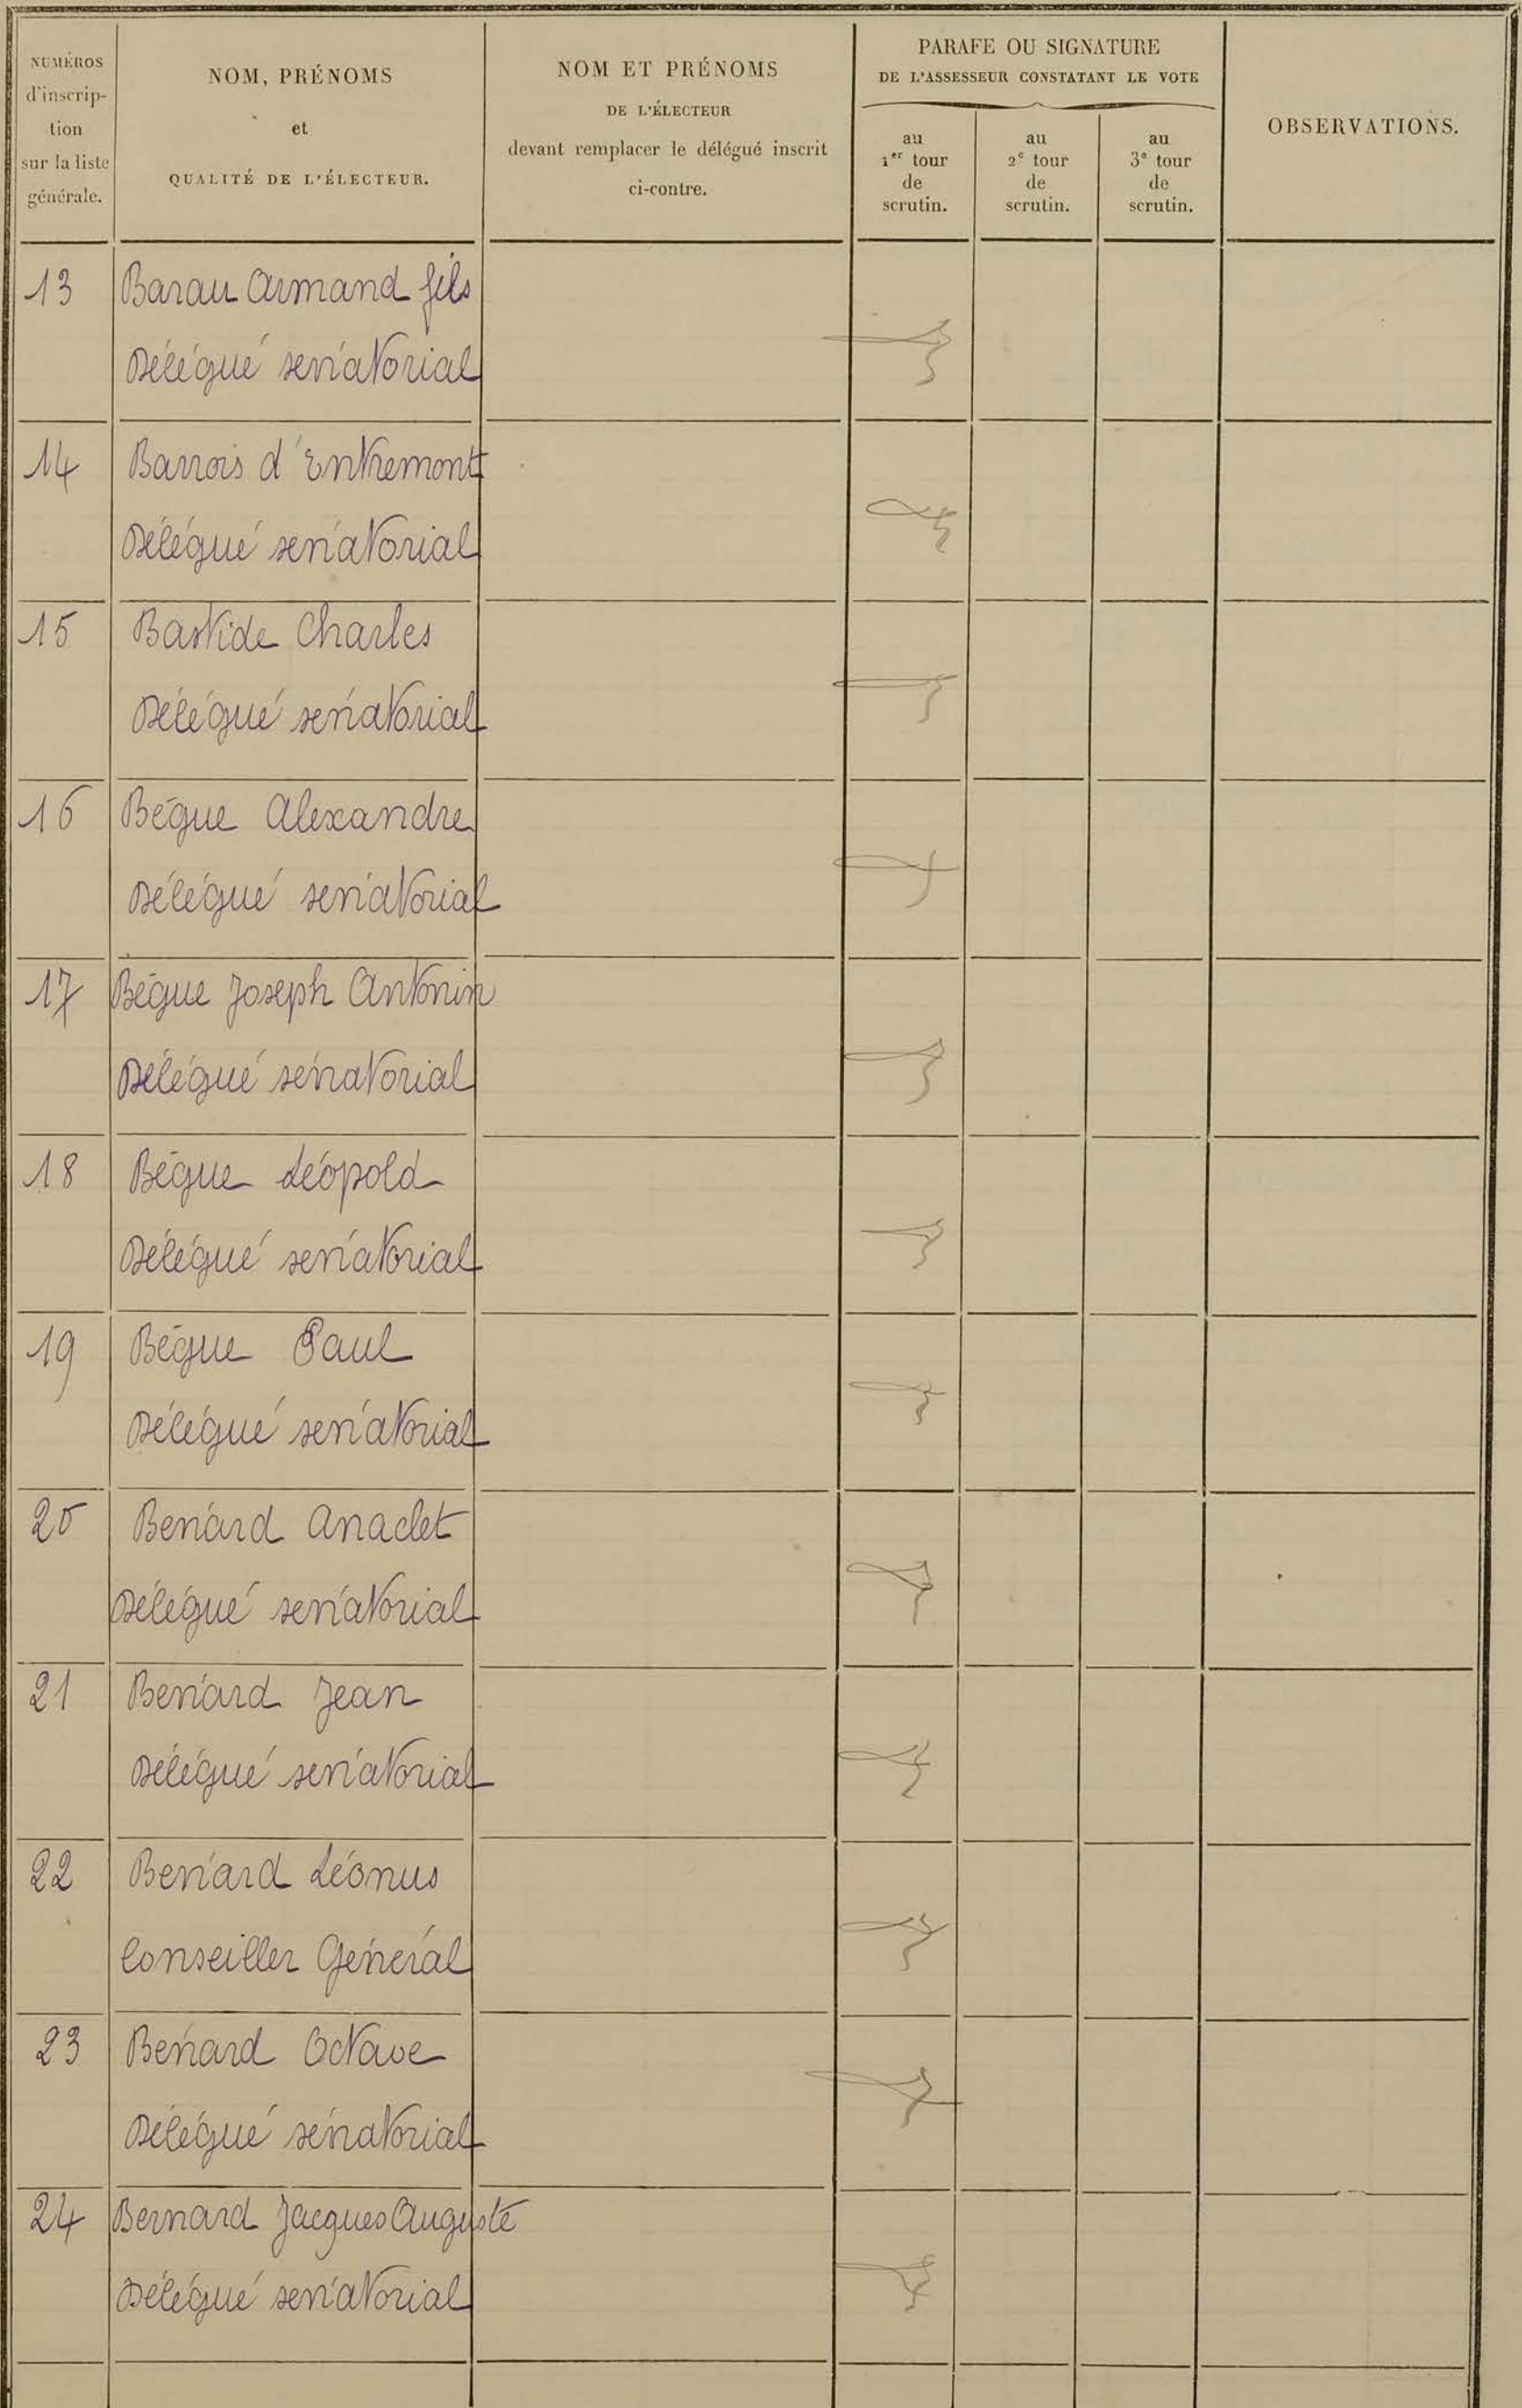 NUMÉROS
d'inscrip-
tion
sur la liste
générale.
NOM, PRÉNOMS
et
QUALITÉ DE L'ÉLECTEUR.
NOM ET PRÉNOMS
DE L'ÉLECTEUR
devant remplacer le délégué inscrit
ci-contre.
PARAFE OU SIGNATURE
DE L'ASSESSEUR CONSTATANT LE VOTE
au
1er tour
de
scrutin.
au
2e tour
de
scrutin.
au
3e tour
de
scrutin.
OBSERVATIONS.
13 Barau Armand fils
Délégué sénatorial
14 Barrois d'Entremont
Délégué sénatorial
15 Bastide Charles
Délégué sénatorial
16 Bègue Alexandre
Délégué sénatorial
17 Bègue Joseph Antonin
Délégué sénatorial
18 Bègue Léopold
Délégué sénatorial
19 Bègue Paul
Délégué sénatorial
20 Bénard Anaclet
Délégué sénatorial
21 Bénard Jean
Délégué sénatorial
22 Bénard Léonus
Conseiller Général
23 Bénard Octave
Délégué sénatorial
24 Bernard Jacques Auguste
Délégué sénatorial